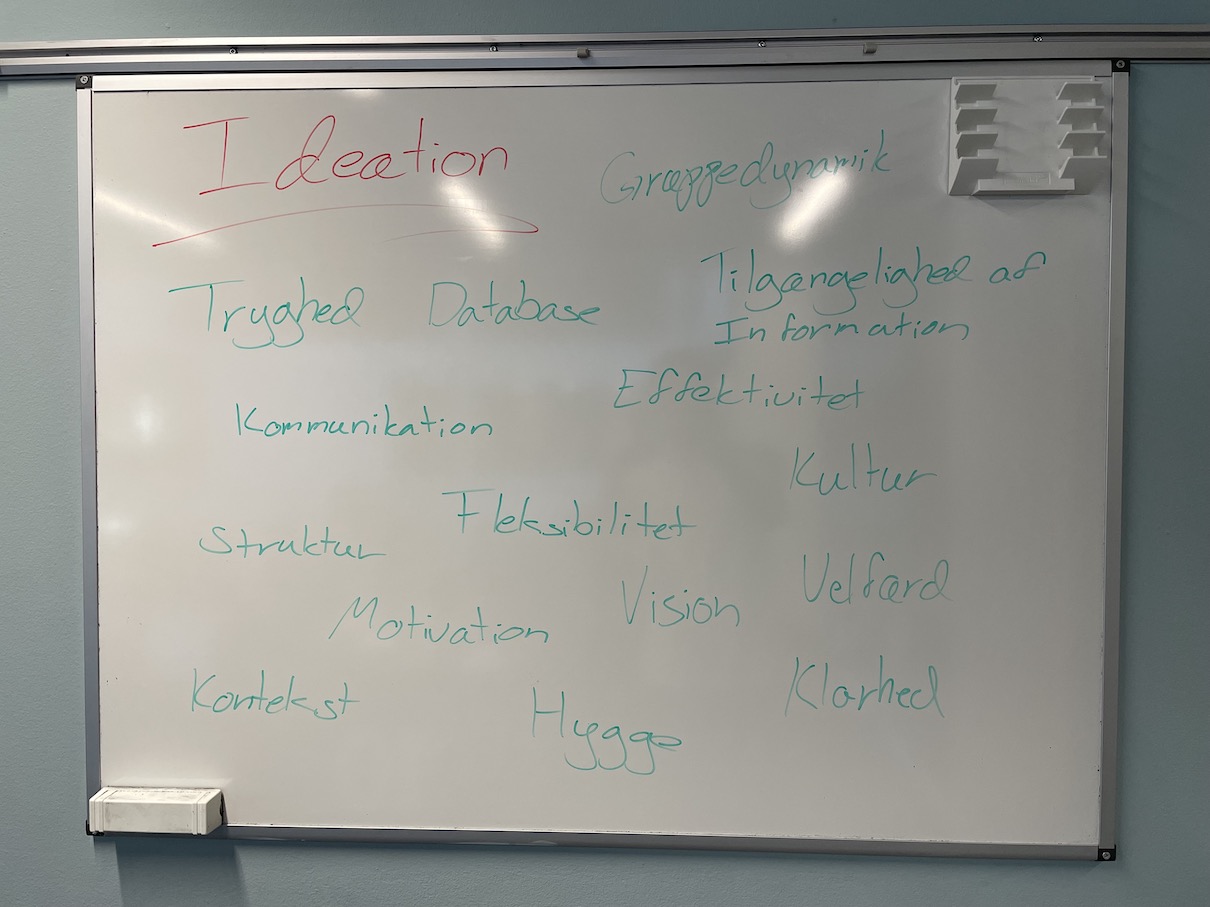 Ideation
Gruppedynamik
Tryghed
Database
Tilgængelighed af
Information
Effektivitet
Kommunikation
Kultur
Fleksibilitet
Struktur
Velfærd
Vision
Motivation
Kontekst
Klarhed
Hygge